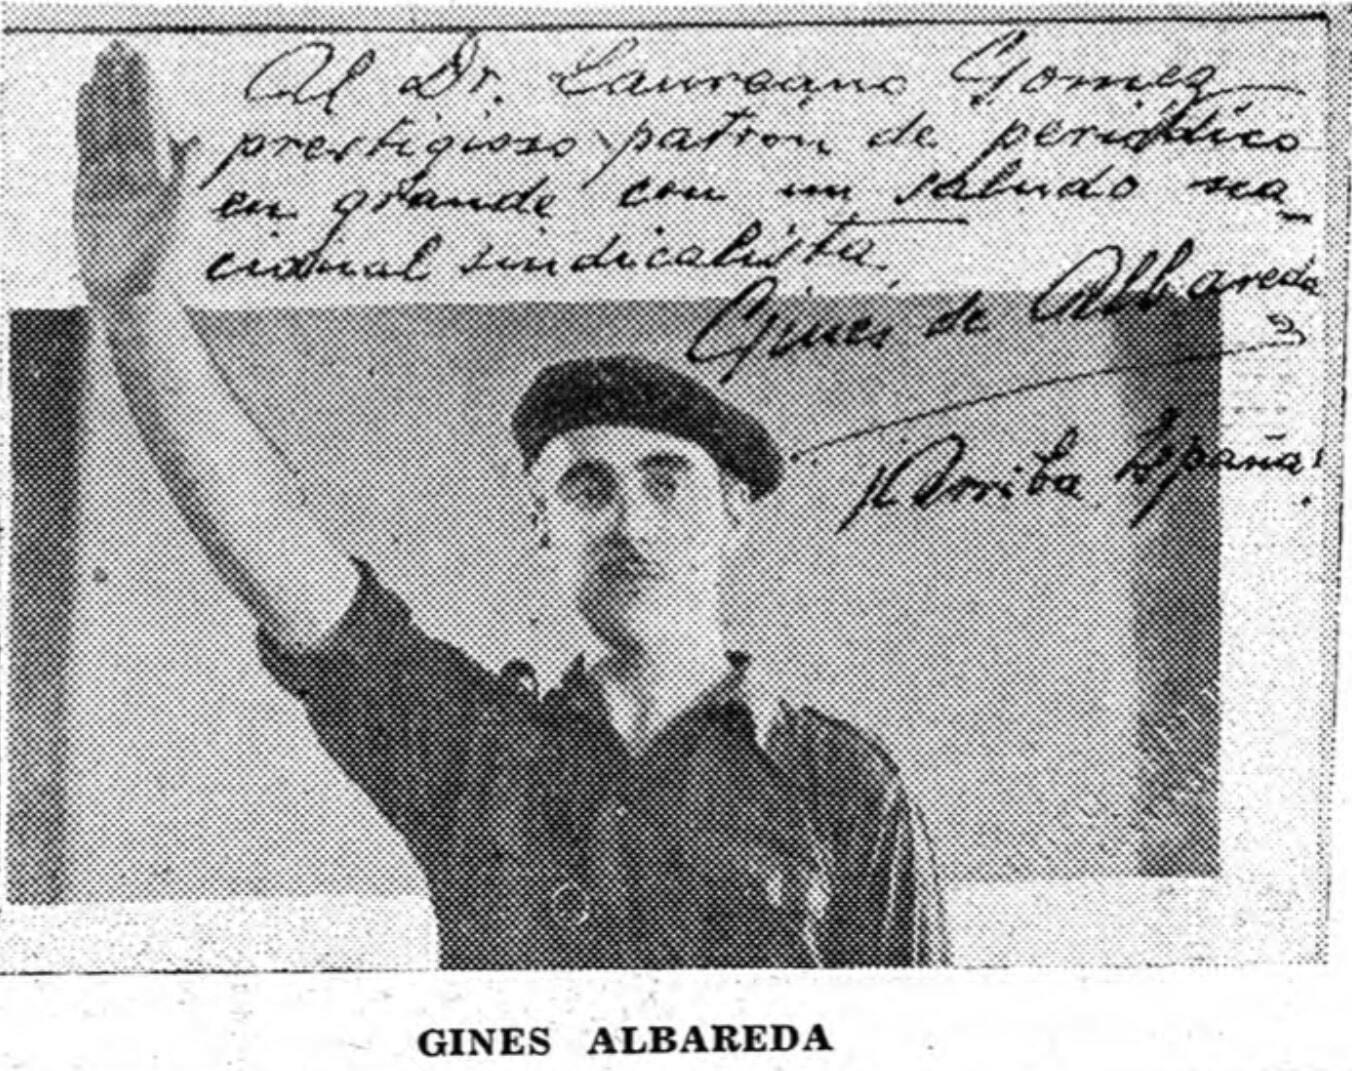 Al Dr. Laureano Gomez
prestigioso patrón de periódico
en grande con un saludo na-
cional sindicalista.
Ginés de Albareda
¡Arriba España!
GINES ALBAREDA